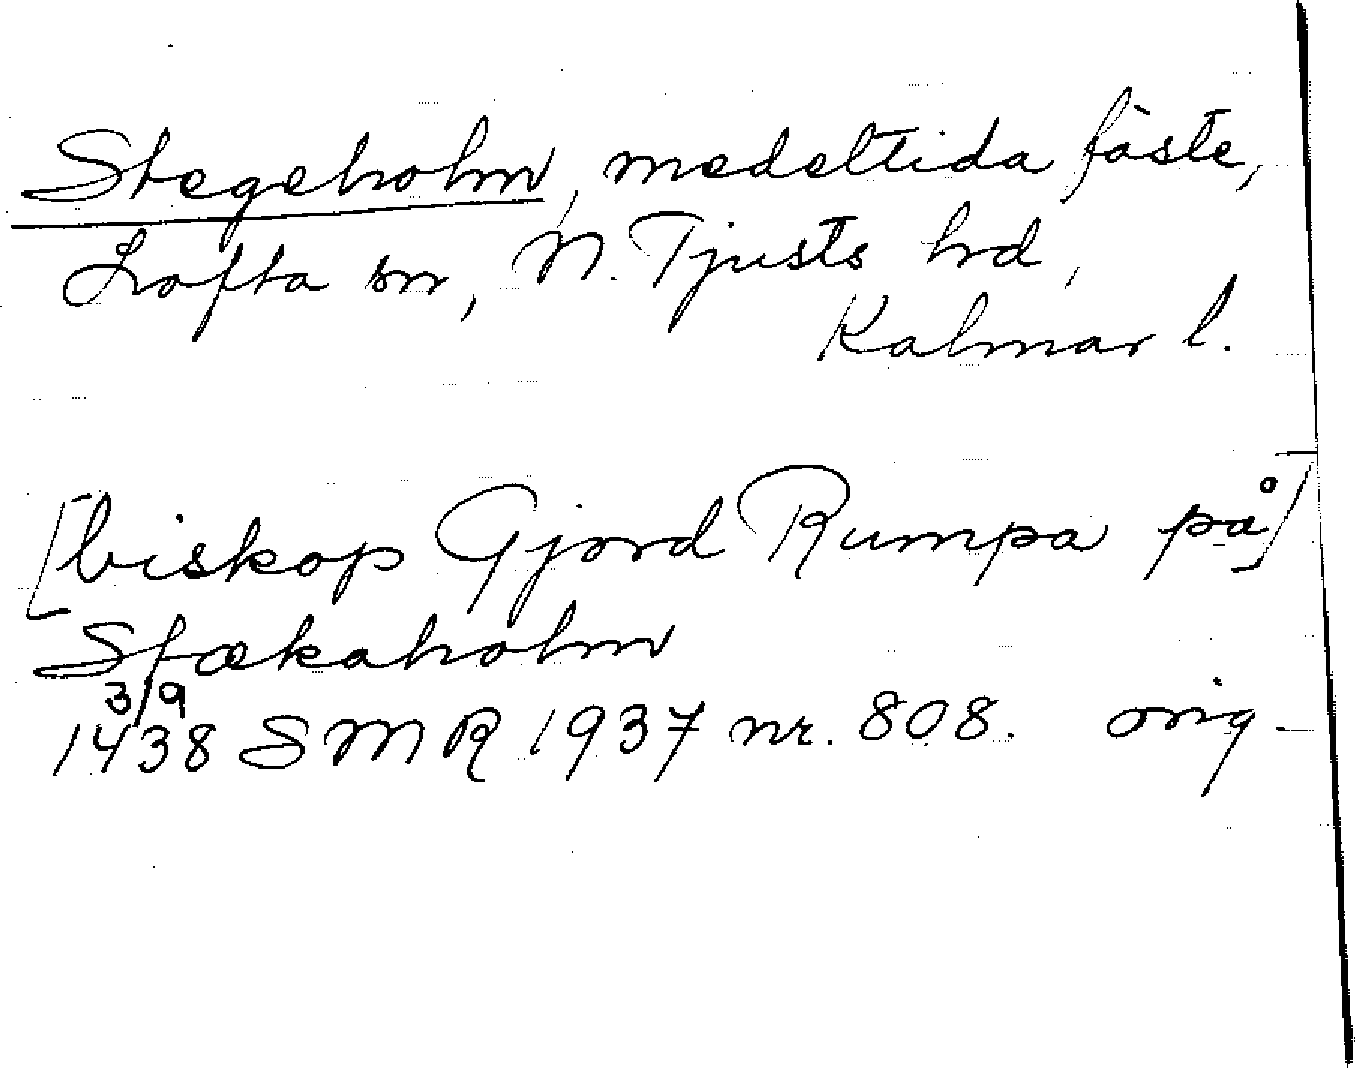 Stegeholm, medeltida fäste,
Lofta sn, N. Tjusts hd,
Kalmar l.
[biskop Gjord Rumpa på]
Stækaholm
3/9
1438 SMR 1937 nr. 808. orig.